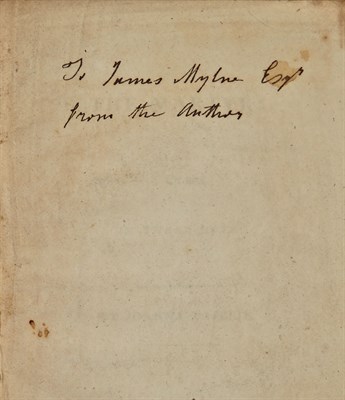 To James Mylne Esqr
from the Author